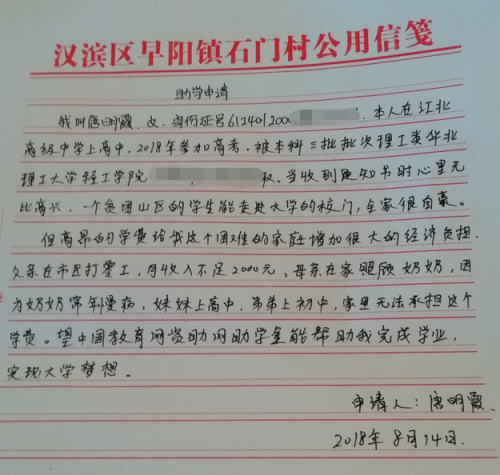 汉滨区早阳镇石门村公用信笺
助学申请
我叫唐明霞、女、身份证号612401200 . 本人在江北
高级中学上高中, 2018年参加高考. 被本科三批批次理工类华北
理工大学轻工学院 取. 当收到通知书时心里无
比高兴, 一个贫困山区的学生能走进大学的校门, 全家很自豪。
但高昂的学费给我这个困难的家庭增加很大的经济负担.
父亲在市区打零工, 月收入不足2000元、母亲在家照顾奶奶, 因
为奶奶常年慢病, 妹妹上高中、弟弟上初中, 家里无法承担这个
学费。望中国教育网资助网助学金能帮助我完成学业,
实现大学梦想。
申请人: 唐明霞.
2018年8月14日.